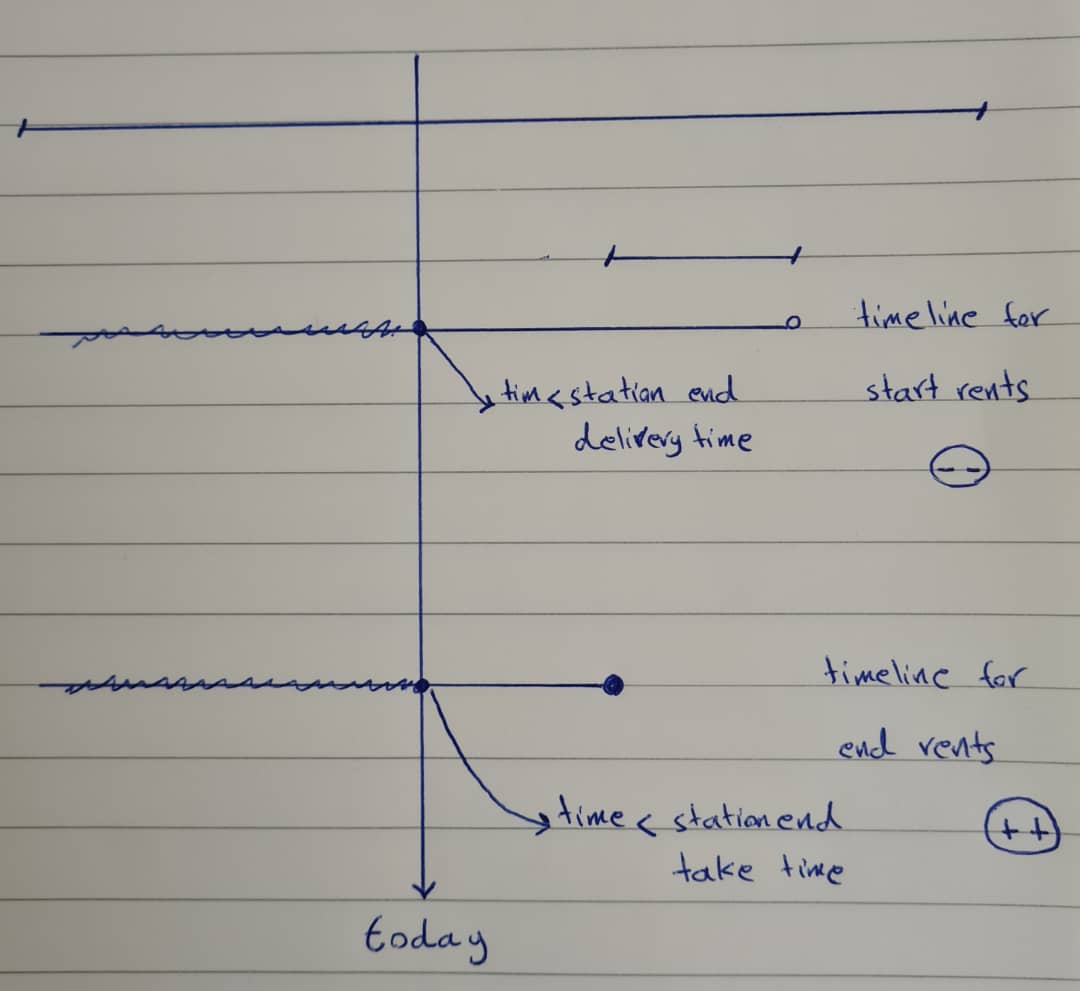 timeline for
start rents
tim < station end
delivery time
--
timeline for
end rents
time < station end
take time
++
today